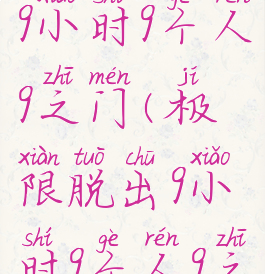 xiǎo shí gè rén
9小时9个人
zhī mén jí
9之门(极
xiàn tuō chū xiǎo
限脱出9小
shí gè rén zhī
时9个人9之